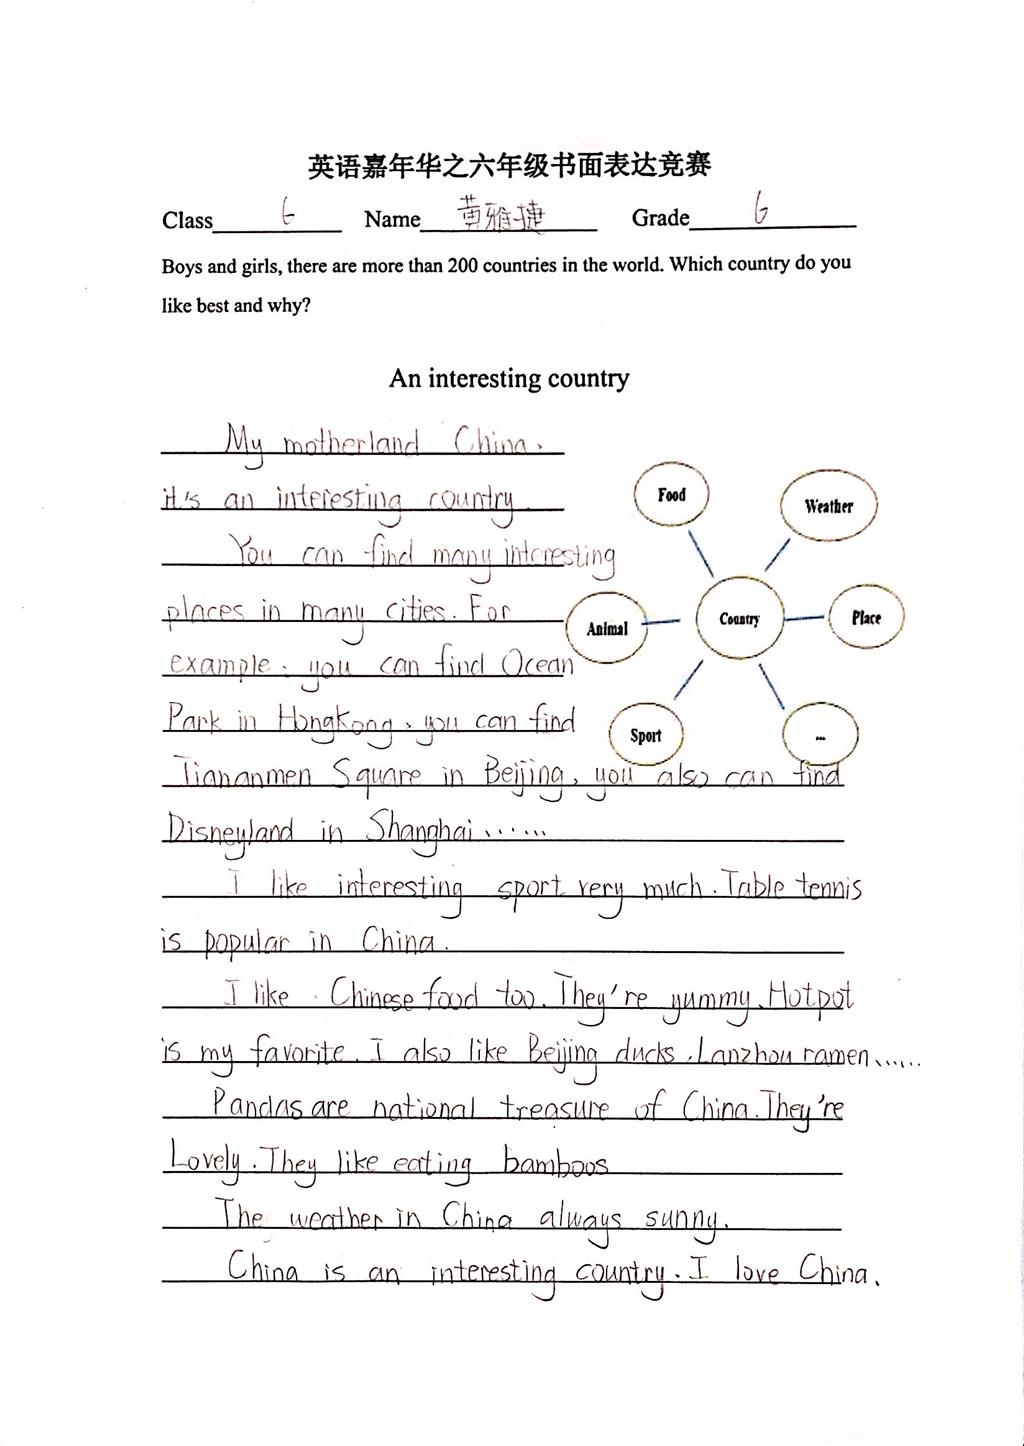 英语嘉年华之六年级书面表达竞赛
Class 6 Name 黄雅捷 Grade 6
Boys and girls, there are more than 200 countries in the world. Which country do you
like best and why?
An interesting country
My motherland China.
it's an interesting country
You can find many interesting
places in many cities. For
example. you can find Ocean
Park in HongKong, you can find
Tiananmen Square in Beijing, you also can find
Disneyland in Shanghai......
I like interesting sport very much. Table tennis
is popular in China.
I like Chinese food too. They're yummy. Hotpot
is my favorite. I also like Beijing ducks. Lanzhou ramen......
Pandas are national treasure of China. They're
Lovely. They like eating bamboos
The weather in China always sunny.
China is an interesting country. I love China.
Food
Weather
Animal
Country
Place
Sport
...